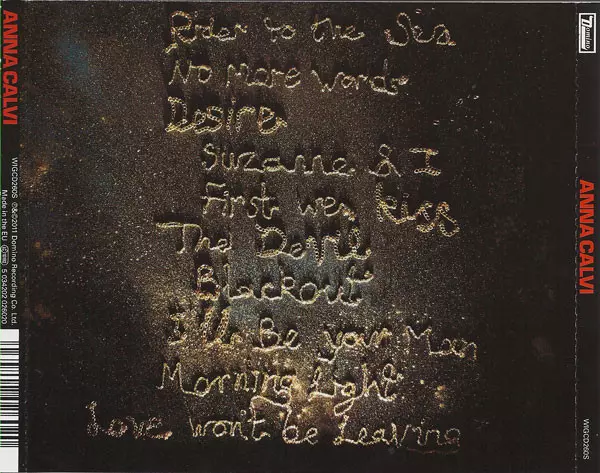 Rider to the Sea
No More Words
Desire
Suzanne & I
First we Kiss
The Devil
Blackout
I'll Be your Man
Morning Light
Love won't be Leaving
ANNA CALVI
WIGCD260S ℗&©2011 Domino Recording Co. Ltd.
Made in the EU
5 034202 026020
Domino
ANNA CALVI
WIGCD260S